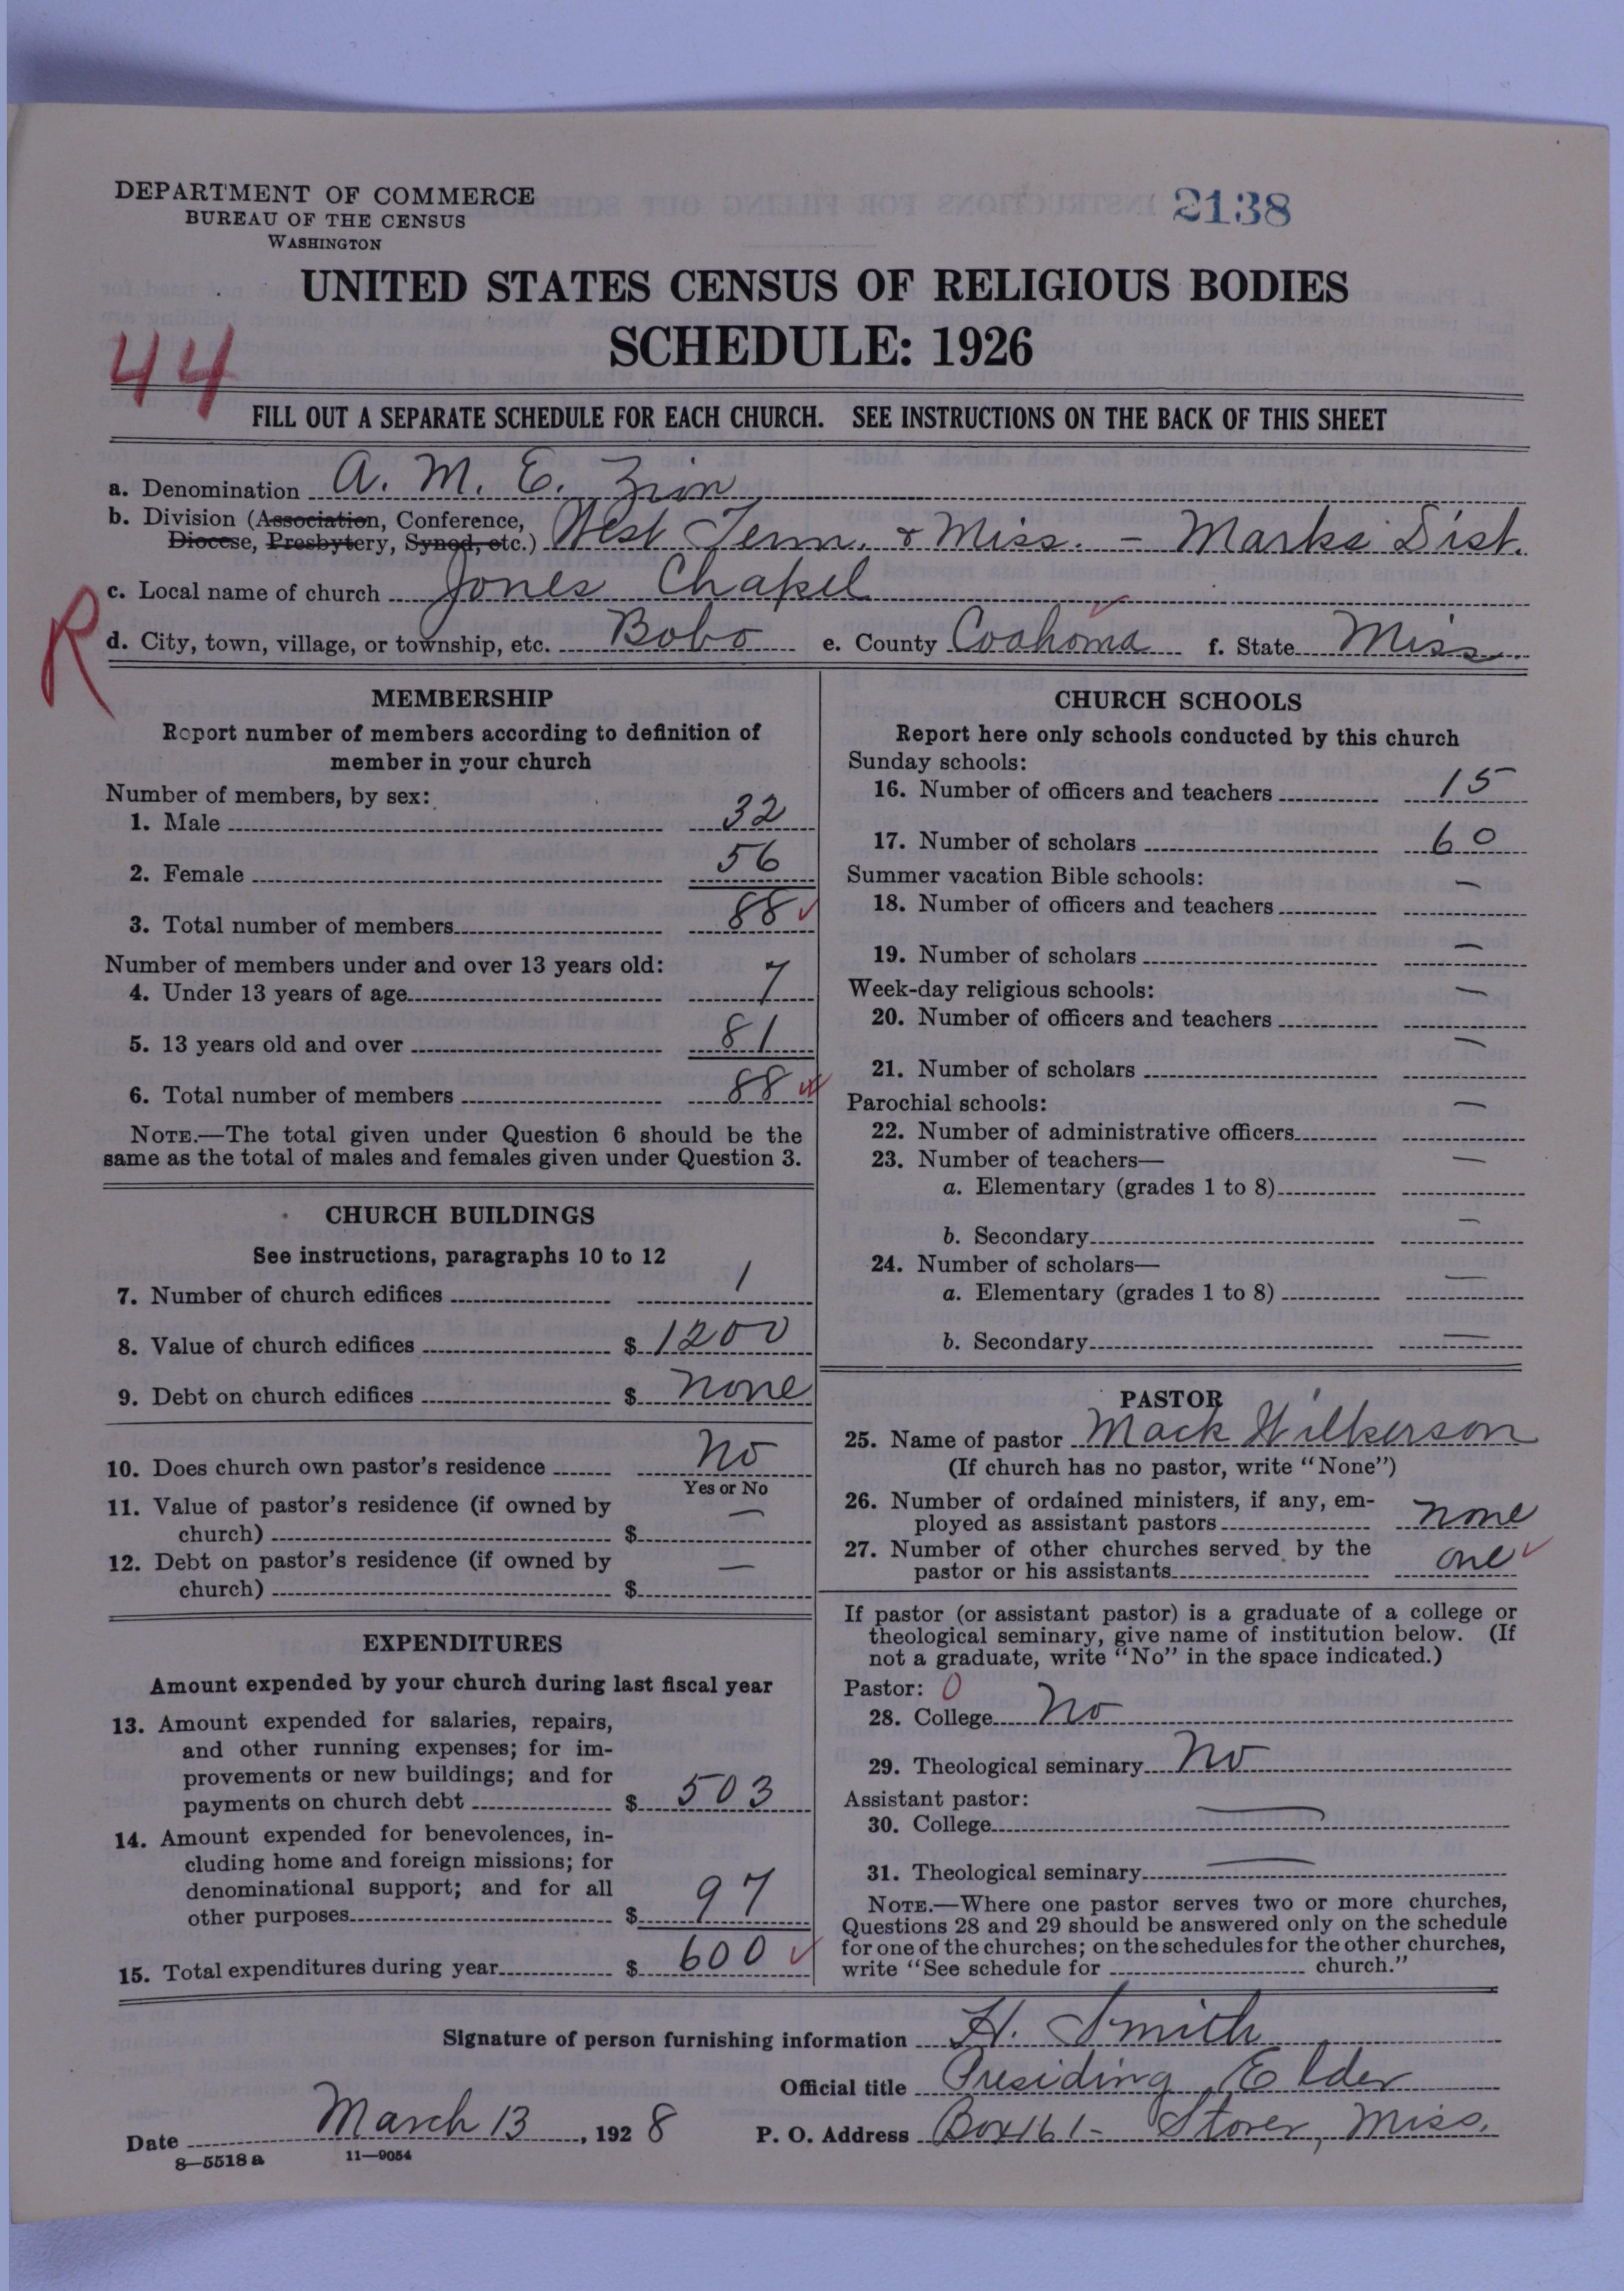 DEPARTMENT OF COMMERCE
BUREAU OF THE CENSUS
WASHINGTON
2138
UNITED STATES CENSUS OF RELIGIOUS BODIES
SCHEDULE: 1926
44
FILL OUT A SEPARATE SCHEDULE FOR EACH CHURCH. SEE INSTRUCTIONS ON THE BACK OF THIS SHEET
a. Denomination A. M. E. Zion
b. Division (Association, Conference,
Diocese, Presbytery, Synod, etc.) West Tenn. & Miss. - Marks Dist.
c. Local name of church Jones Chapel
R
d. City, town, village, or township, etc. Bobo e. County Coahoma f. State Miss.
MEMBERSHIP
Report number of members according to definition of
member in your church
Number of members, by sex:
1. Male 32
2. Female 56
3. Total number of members 88
Number of members under and over 13 years old:
4. Under 13 years of age 7
5. 13 years old and over 81
6. Total number of members 88
NOTE.—The total given under Question 6 should be the
same as the total of males and females given under Question 3.
CHURCH BUILDINGS
See instructions, paragraphs 10 to 12
7. Number of church edifices 1
8. Value of church edifices $ 1200
9. Debt on church edifices $ none
10. Does church own pastor's residence No
Yes or No
11. Value of pastor's residence (if owned by
church) $ —
12. Debt on pastor's residence (if owned by
church) $ —
EXPENDITURES
Amount expended by your church during last fiscal year
13. Amount expended for salaries, repairs,
and other running expenses; for im-
provements or new buildings; and for
payments on church debt $ 503
14. Amount expended for benevolences, in-
cluding home and foreign missions; for
denominational support; and for all
other purposes $ 97
15. Total expenditures during year $ 600
CHURCH SCHOOLS
Report here only schools conducted by this church
Sunday schools:
16. Number of officers and teachers 15
17. Number of scholars 60
Summer vacation Bible schools:
18. Number of officers and teachers —
19. Number of scholars —
Week-day religious schools:
20. Number of officers and teachers —
21. Number of scholars —
Parochial schools:
22. Number of administrative officers —
23. Number of teachers—
a. Elementary (grades 1 to 8) —
b. Secondary —
24. Number of scholars—
a. Elementary (grades 1 to 8) —
b. Secondary —
PASTOR
25. Name of pastor Mack Wilkerson
(If church has no pastor, write "None")
26. Number of ordained ministers, if any, em-
ployed as assistant pastors none
27. Number of other churches served by the
pastor or his assistants one
If pastor (or assistant pastor) is a graduate of a college or
theological seminary, give name of institution below. (If
not a graduate, write "No" in the space indicated.)
Pastor: 0
28. College No
29. Theological seminary No
Assistant pastor:
30. College —
31. Theological seminary —
NOTE.—Where one pastor serves two or more churches,
Questions 28 and 29 should be answered only on the schedule
for one of the churches; on the schedules for the other churches,
write "See schedule for church."
Signature of person furnishing information H. Smith
Official title Presiding Elder
Date March 13, 1928 P. O. Address Box 161 - Stover, Miss.
8—5518 a 11—9054